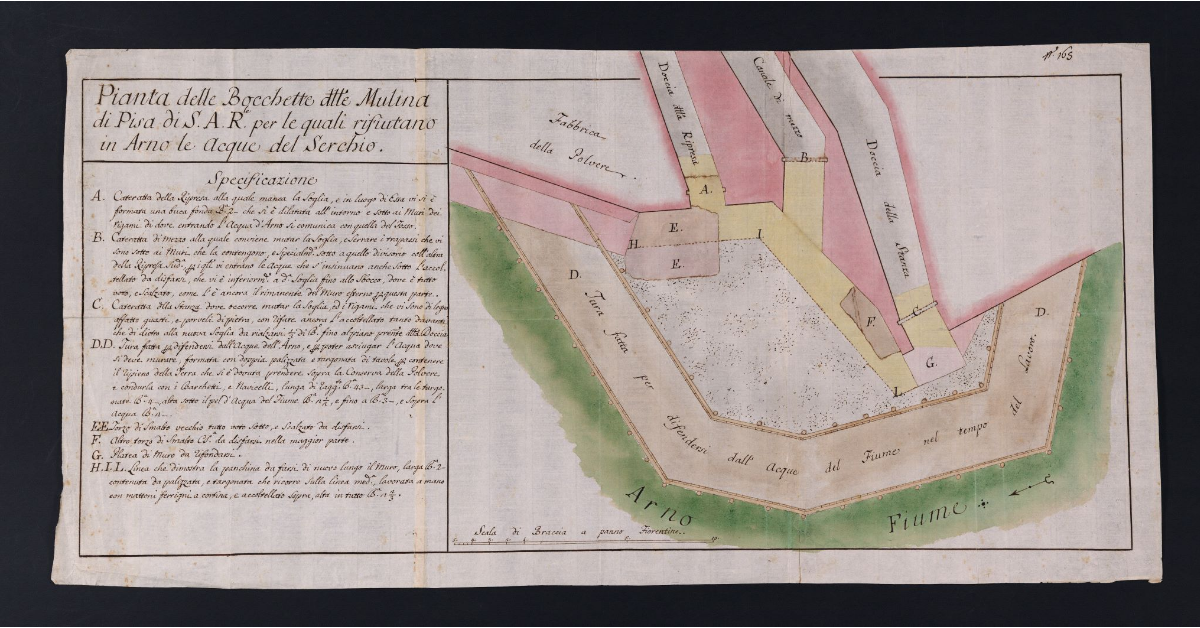 Nº. 165
Pianta delle Bocchette delle Mulina
di Pisa di S. A. R. per le quali rifiutano
in Arno le Acque del Serchio.
Specificazione
A. Cateratta della Ripresa alla quale manca la Soglia, e in luogo di Essa vi si è
formata una buca fonda Bª 2 che si è dilatata all'intorno e sotto ai Muri dei
di dove, entrando l'Acqua d'Arno si comunica con quella del Fosso.
B. Cateratta di Mezzo alla quale conviene mutar la Soglia, e serrare i trapassi che vi
sono sotto ai Muri che la contengono; e sotto a quello divisorio coll'altra
della Ripresa vi entrano le Acque che s'insinuano anche sotto l'accol
tellato da disfarsi, che vi è Soglia fino allo Sbocco, dove è tutto
voto, e Scalzato, come l'è ancora il rimanente del Muro esterno questa parte.
C. Cateratta della Stanza dove occorre mutar la Soglia, ed i che vi sono di legno
affatto guasti, e porveli di pietra, con rifare ancora l'accoltellato tanto davanti
che di dietro alla nuova Soglia da rialzarsi ½ di Bª fino al piano della Doccia
D.D. Tura fatta difendersi dall'Acque dell'Arno, e poter asciugar l'Acqua dove
si deve murare, formata con doppia palizzata e targonata di tavole contenere
il ripieno della Terra che si è dovuta prendere sopra la Conserva della Polvere
e condurla con i Barchetti, e Navicelli, lunga di Bª 43, larga tra le targo
nate Bª 4, alta sotto il pel d'Acqua del Fiume e fino a Bª 5, e sopra l'
Acqua
E.E. Torzo di Smalto vecchio tutto voto sotto, e Scalzato da disfarsi.
F. Altro torzo di Smalto da disfarsi nella maggior parte.
G. Platea di Muro da rifondarsi.
H.I.L. Linea che dimostra la panchina da farsi di nuovo lungo il Muro, larga Bª 2
contenuta da palizzata, e targonata che ricorre sulla linea medª, lavorata a mano
con mattoni ferrigni a cortina, e accoltellato sopra, alta in tutto
Fabbrica
della Polvere
Doccia della Ripresa
Canale di mezzo
Doccia della Stanza
A.
B.
C.
D.
D.
E.
E.
F.
G.
H.
I.
L.
Tura fatta per difendersi dall'Acque del Fiume nel tempo del Lavoro.
Arno Fiume
Scala di Braccia a panno Fiorentine.